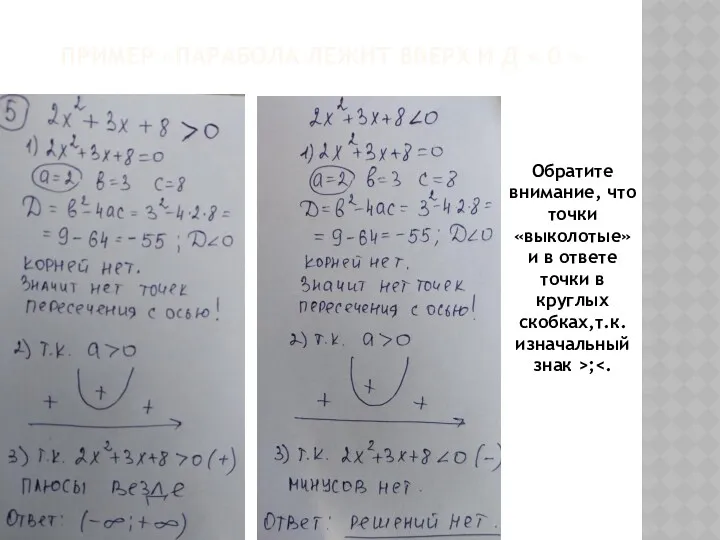 ПРИМЕР «ПАРАБОЛА ЛЕЖИТ ВВЕРХ И Д < 0 »
5) 2x² + 3x + 8 > 0
1) 2x²+3x+8=0
a=2 в=3 c=8
D = в²-4ac = 3²-4·2·8 =
= 9-64 = -55 ; D<0
корней нет.
значит нет точек
пересечения с осью!
2) т.к. a>0
+ + +
3) т.к. 2x²+3x+8>0 (+)
плюсы везде
Ответ: (-∞; +∞)
2x²+3x+8<0
1) 2x²+3x+8=0
a=2 в=3 c=8
D=в²-4ac = 3²-4·2·8=
= 9-64=-55; D<0
корней нет.
значит нет точек
пересечения с осью!
2) т.к. a>0
+ + +
3) т.к. 2x²+3x+8<0 (-)
минусов нет.
Ответ: решений нет.
Обратите
внимание, что
точки
«выколотые»
и в ответе
точки в
круглых
скобках,т.к.
изначальный
знак >;<.